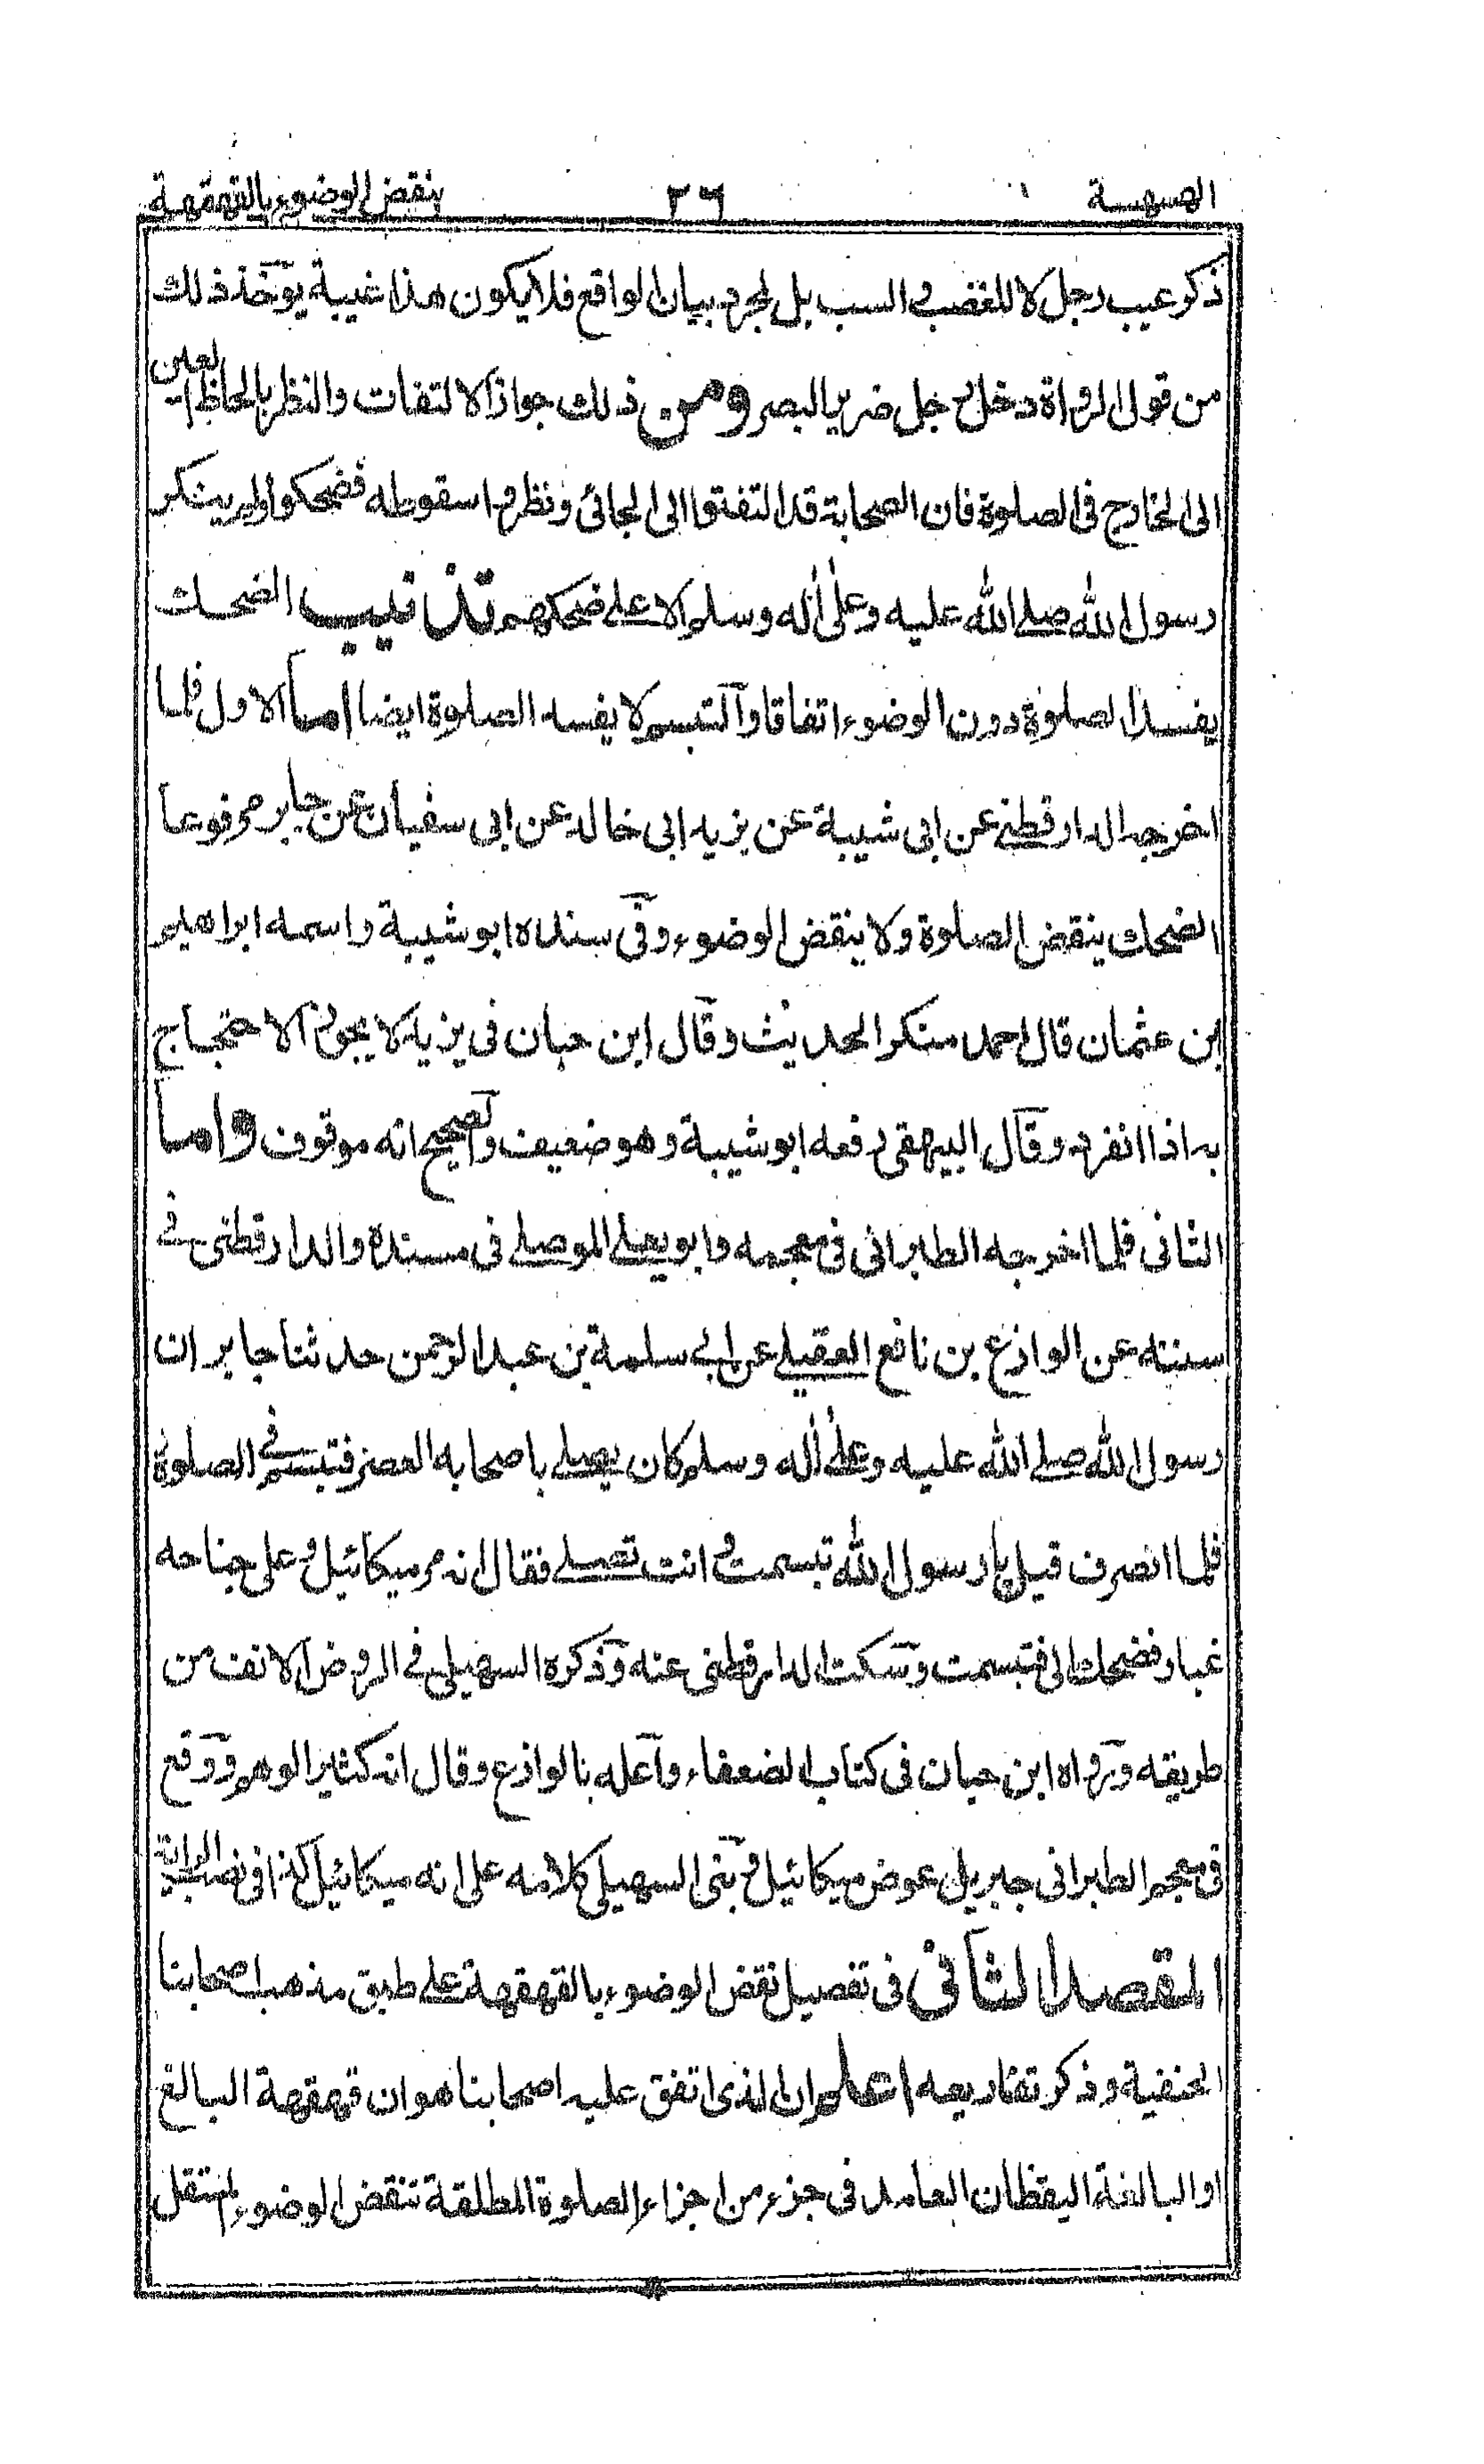 الهسهسة ٢٦ بنقض الوضوء بالقهقهة
ذكر عيب رجل لا للغضب والسب بل لمجرد بيان الواقع فلا يكون هذا غيبة يؤخذ ذلك
من قول الرواة دخل رجل ضرير البصر ومن ذلك جواز الالتفات والنظر بالحاظ العين
الى الخارج فى الصلوة فان الصحابة قد التفتوا الى الجائى ونظروا سقوطه فضحكوا ولم ينكر
رسول الله صلى الله عليه وعلى اله وسلم الا على ضحكهم تذنيب الضحك
يفسد الصلوة دون الوضوء اتفاقا والتبسم لا يفسد الصلوة ايضا اما الاول فلما
اخرجه الدارقطنى عن ابى شيبة عن يزيد ابى خالد عن ابى سفيان عن جابر مرفوعا
الضحك ينقض الصلوة ولا ينقض الوضوء وفى سنده ابو شيبة واسمه ابراهيم
ابن عثمان قال احمد منكر الحديث وقال ابن حبان فى يزيد لا يجوز الاحتجاج
به اذا انفرد وقال البيهقى رفعه ابو شيبة وهو ضعيف والصحيح انه موقوف واما
الثانى فلما اخرجه الطبرانى فى معجمه وابو يعلى الموصلى فى مسنده والدارقطنى فى
سننه عن الوازع بن نافع العقيلى عن ابى سلمة بن عبد الرحمن حدثنا جابر ان
رسول الله صلى الله عليه وعلى اله وسلم كان يصلى باصحابه العصر فتبسم فى الصلوة
فلما انصرف قيل يا رسول الله تبسمت وانت تصلى فقال انه مر ميكائيل وعلى جناحه
غبار فضحك الى فتبسمت وسكت الدارقطنى عنه وذكره السهيلى فى الروض الانف من
طريقه ورواه ابن حبان فى كتاب الضعفاء واعله بالوازع وقال انه كثير الوهم ووقع
فى معجم الطبرانى جبريل عوض ميكائيل وبنى السهيلى كلامه على انه ميكائيل كذا فى نصب الراية
المقصد الثانى فى تفصيل نقض الوضوء بالقهقهة على طبق مذهب اصحابنا
الحنفية وذكر تفاريعه اعلم ان الذى اتفق عليه اصحابنا هو ان قهقهة البالغ
او البالغة اليقظان العامد فى جزء من اجزاء الصلوة المطلقة تنقض الوضوء